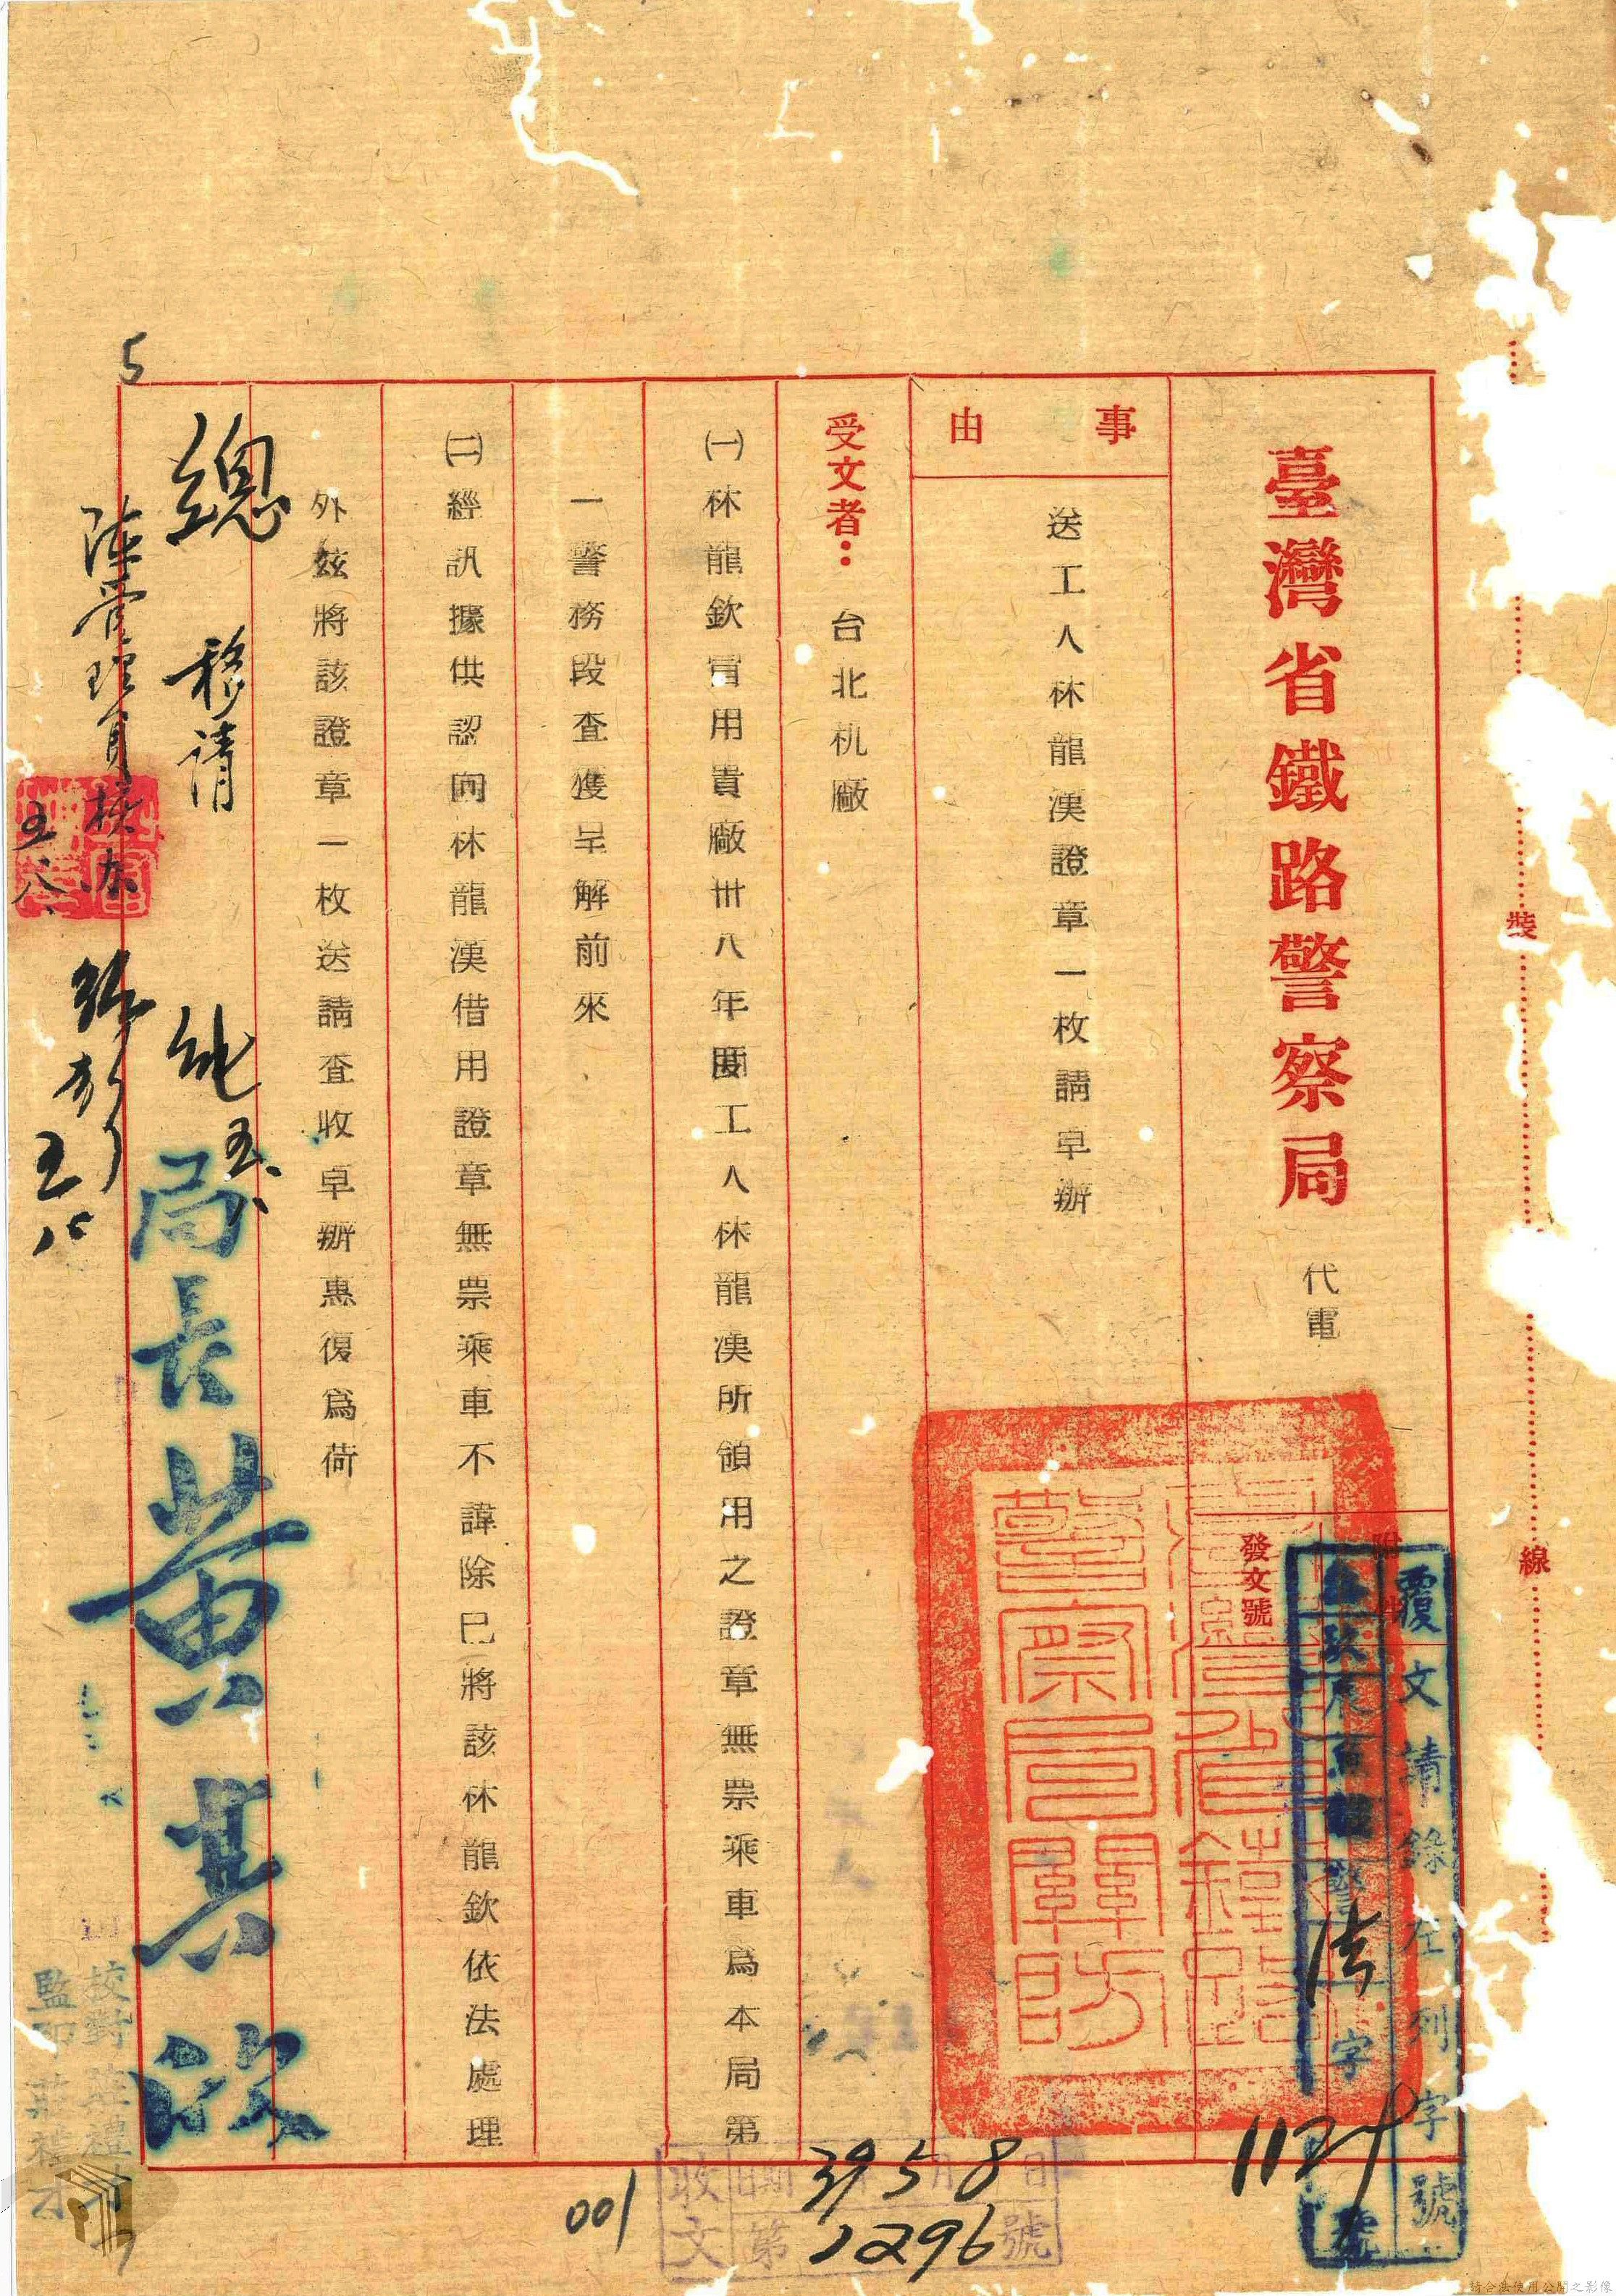 裝
線
臺灣省鐵路警察局 代電
附
發文號
覆文請錄左列字號
警法字
1124
號
臺灣省鐵路警察局關防
事由
送工人林龍漢證章一枚請卓辦
受文者：台北机廠
㈠林龍欽冒用貴廠卅八年度工人林龍漢所領用之證章無票乘車爲本局第
一警務段查獲呈解前來
㈡經訊據供認向林龍漢借用證章無票乘車不諱除已將該林龍欽依法處理
外玆將該證章一枚送請查收卓辦惠復爲荷
局長黃其欣
總 移請
管理員核办
五八
五八
5
校對
監印 莊
收文 日期 39 5月8日
第1296號
001
請合法使用公開之影像